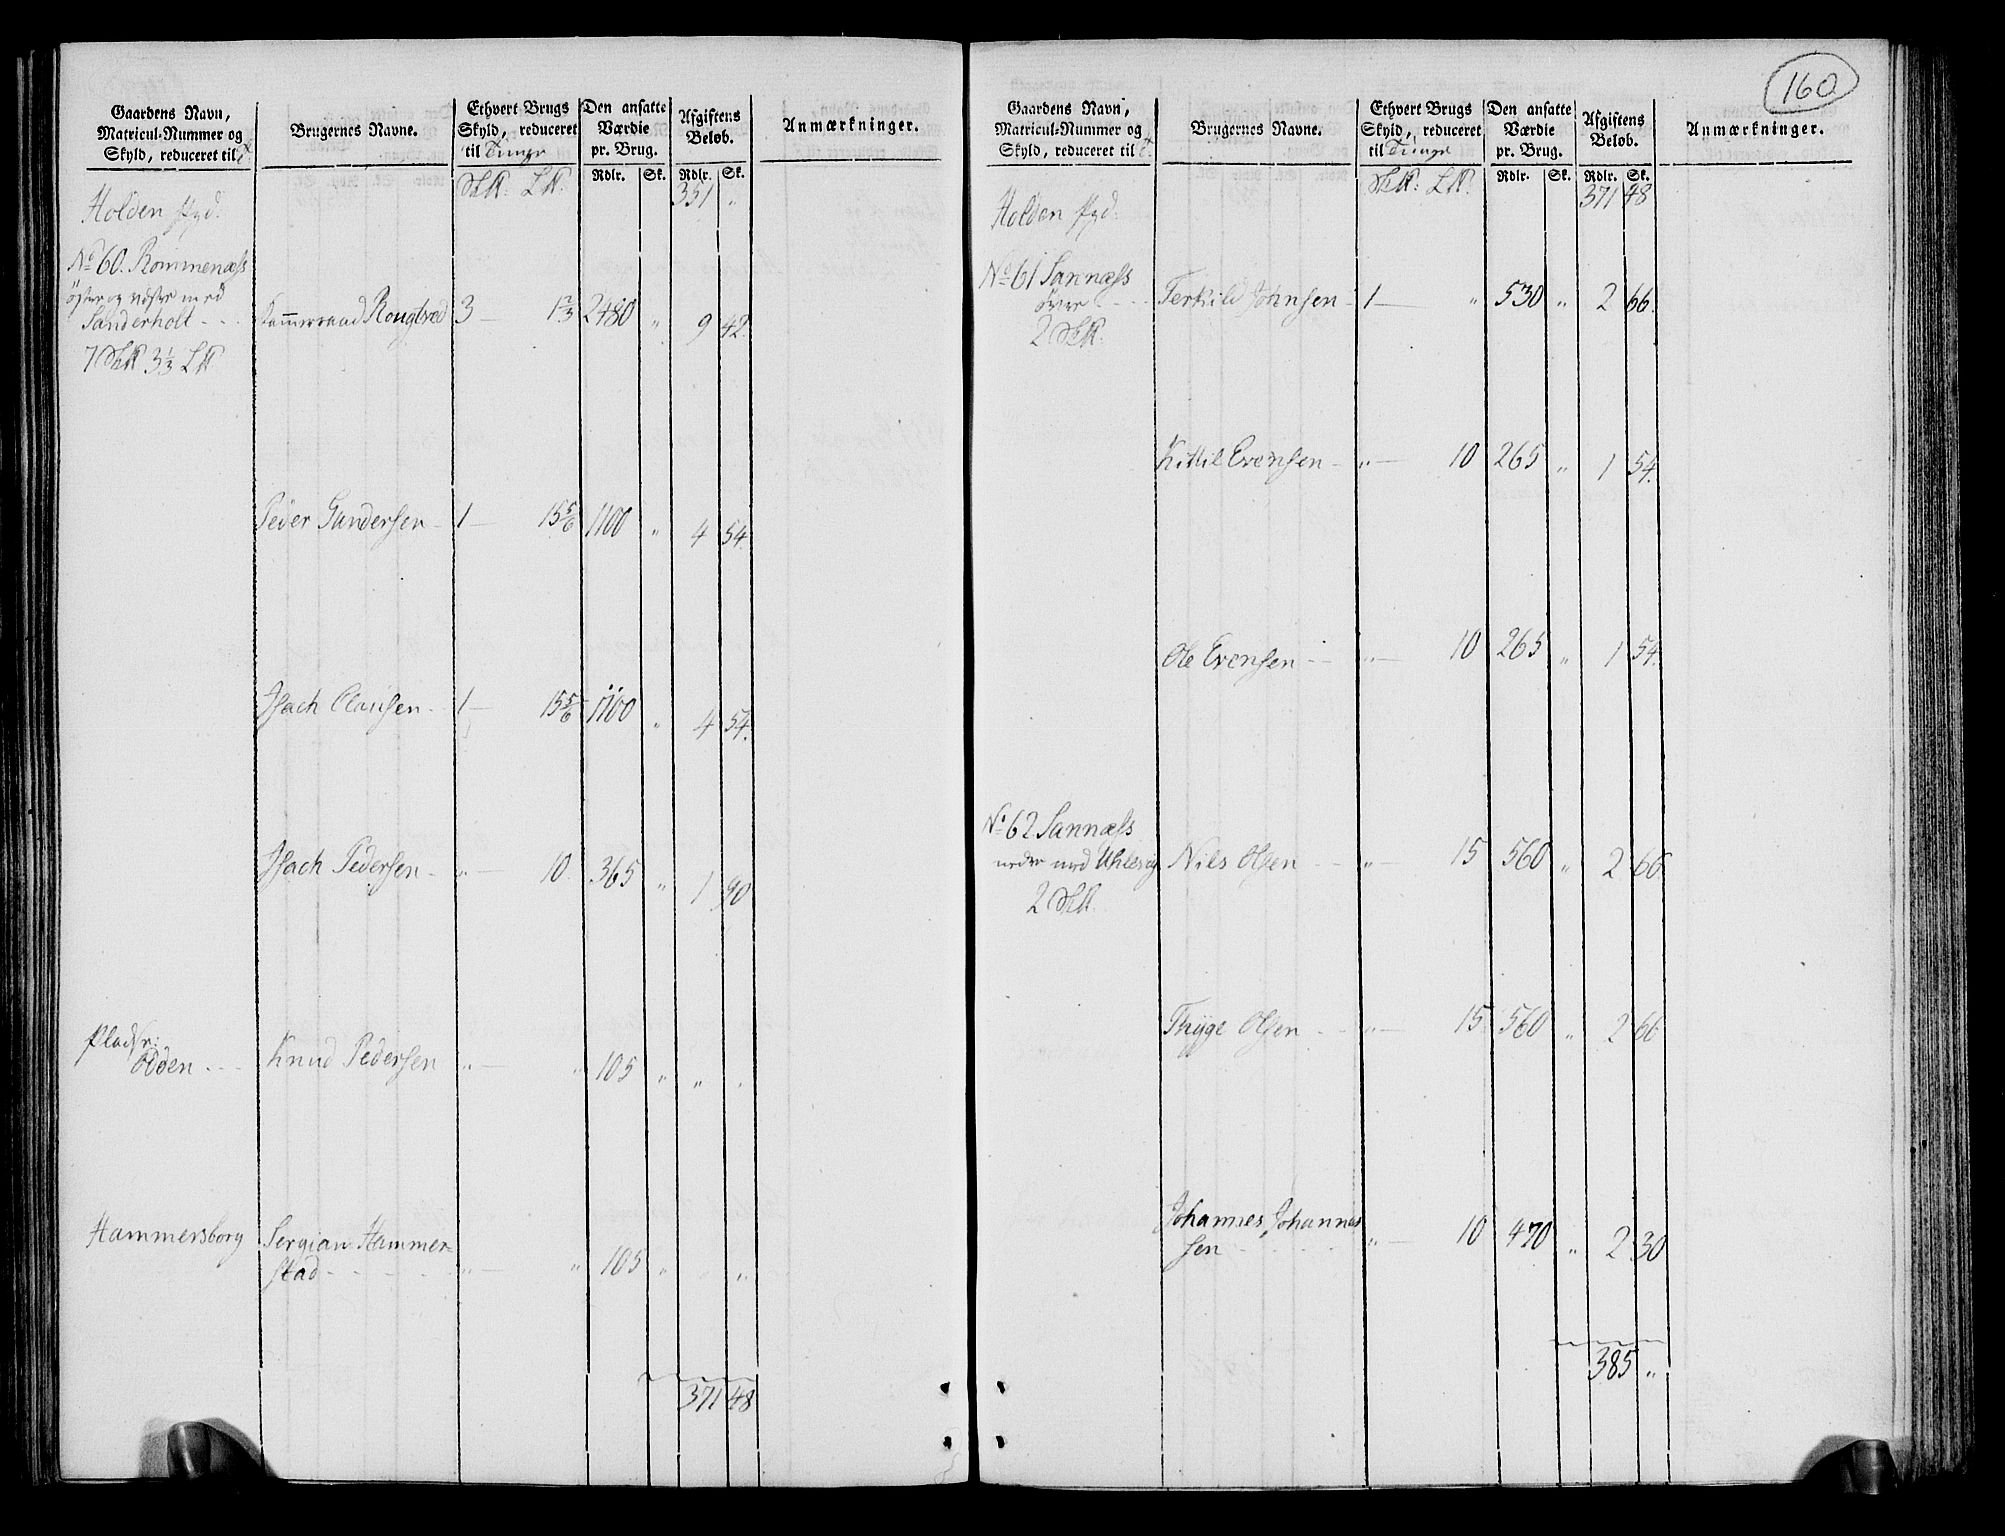 160
Gaardens Navn,
Matricul-Nummer og
Skyld, reduceret til T
Brugernes Navne.
Ethvert Brugs
Skyld, reduceret
til Tunge
Den ansatte
Værdie
pr. Brug.
Afgiftens
Beløb.
Anmærkninger.
Rdlr. Sk. Rdlr. Sk.
Holden Pgd: 351 "
No 60. Rommenæss
öster og vester med
Sanderholt - - Kammerraad Rougtved 3 - 1 2/3 2480 " 9 42.
7 3 1/3
Peder Gundersen - 1 - 15 5/6 1100 " 4 54.
Isach Clausen - 1 - 15 5/6 1100 " 4 54.
Isach Pedersen - " - 10 365 " 1 90
Pladser:
Odden - - - Knud Pedersen " - " 105 " " "
Hammersborg Sergian Hammer=
stad - - - - " - " 105 " "
371 48
Gaardens Navn,
Matricul-Nummer og
Skyld, reduceret til T
Brugernes Navne.
Ethvert Brugs
Skyld, reduceret
til Tunge
Den ansatte
Værdie
pr. Brug.
Afgiftens
Beløb.
Anmærkninger.
Rdlr. Sk. Rdlr. Sk.
Holden Pgd: 371 48
No 61 Sannæss
övre - - - Terkild Johnsen - 1 - " 530 " 2 66.
2
Kittil Evensen - " - 10 265 " 1 54.
Ole Evensen - - " - 10 265 " 1 54.
No 62 Sannæss
nedre med Uhlevig Nils Olsen - - " - 15 560 " 2 66.
2
Thyge Olsen - - " - 15 560 " 2 66
Johannes Johannes
sen - - - - " - 10 470 " 2 30
385 "